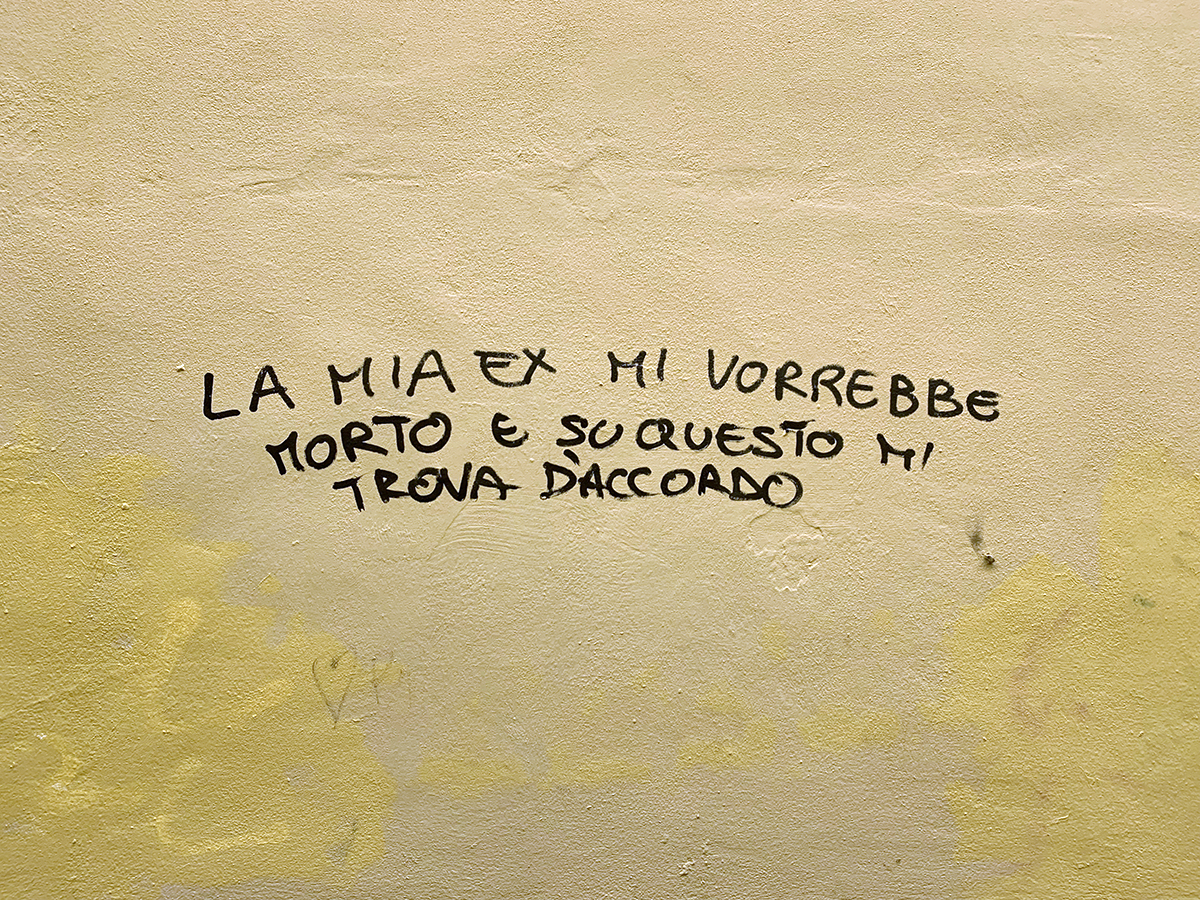 LA MIA EX MI VORREBBE
MORTO E SU QUESTO MI
TROVA D'ACCORDO